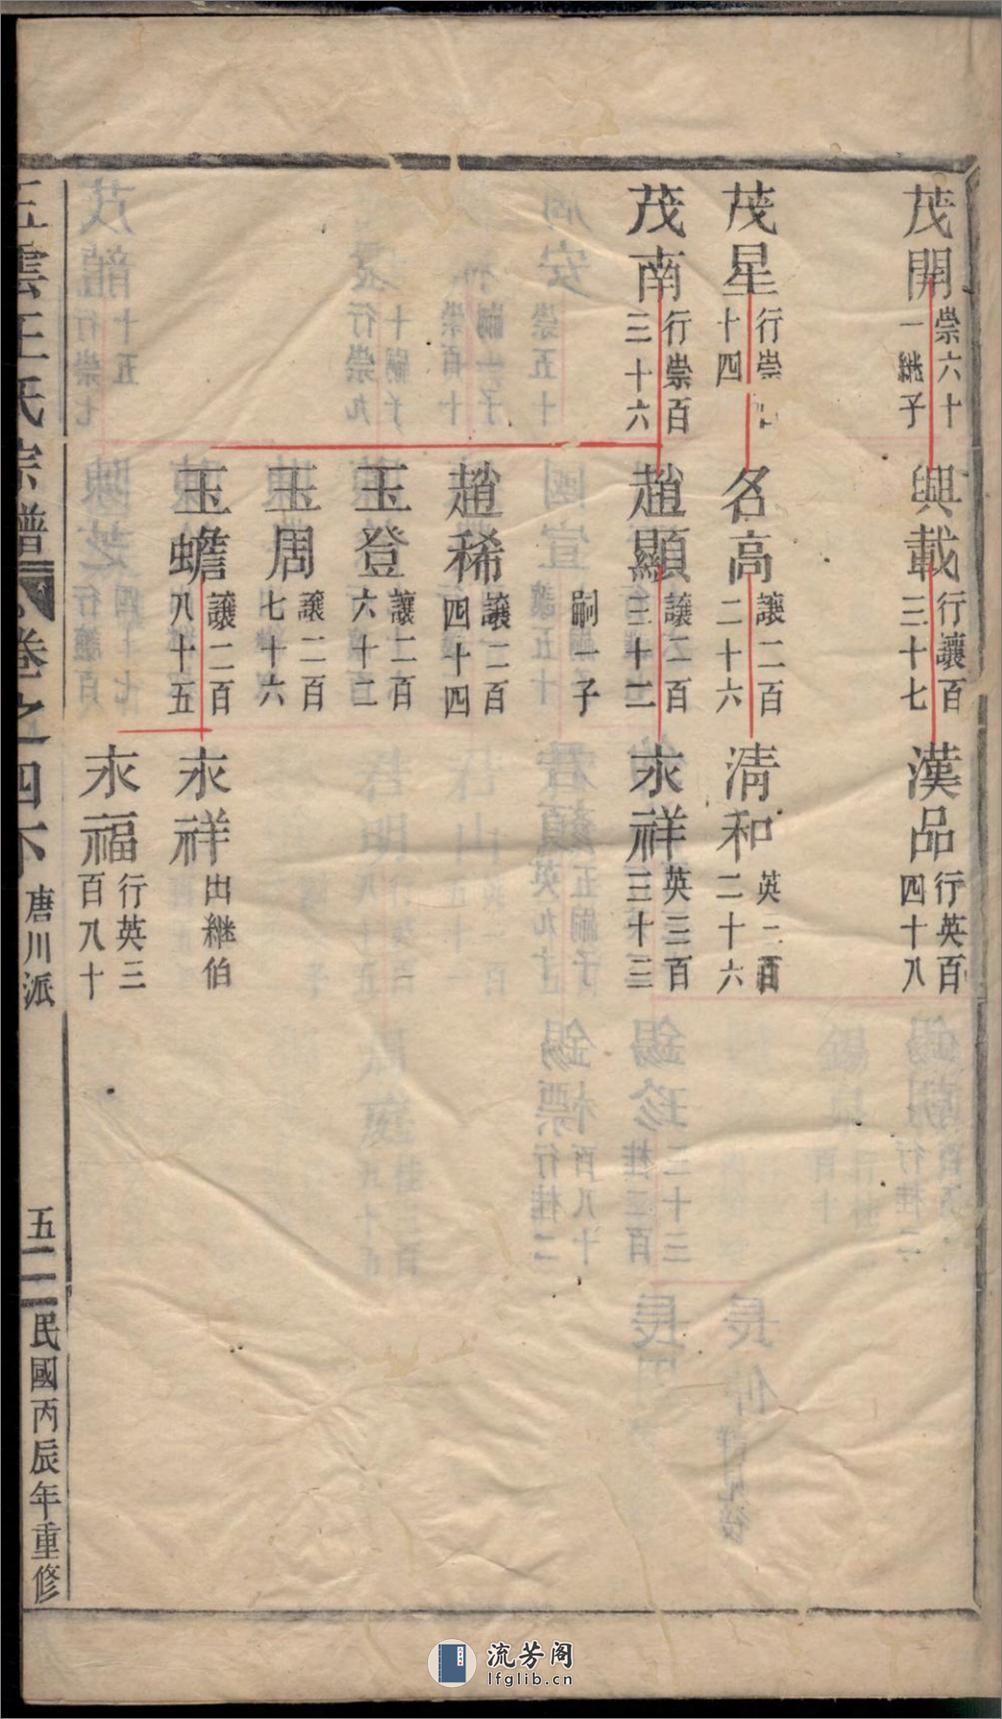 茂開 崇六十一繼子
興載 行讓百三十七
漢品 行英百四十八
茂星 行崇百十四
名高 讓二百二十六
清和 英二百二十六
茂南 行崇百三十六
趙顯 讓二百三十二
嗣一子
永祥 英三百三十三
趙稀 讓二百四十四
玉登 讓二百六十二
玉周 讓二百七十六
玉蟾 讓二百八十五
永祥 出繼伯
永福 行英三百八十
五雲王氏宗譜 卷之四下 唐川派 五二 民國丙辰年重修
流芳阁
lfglib.cn